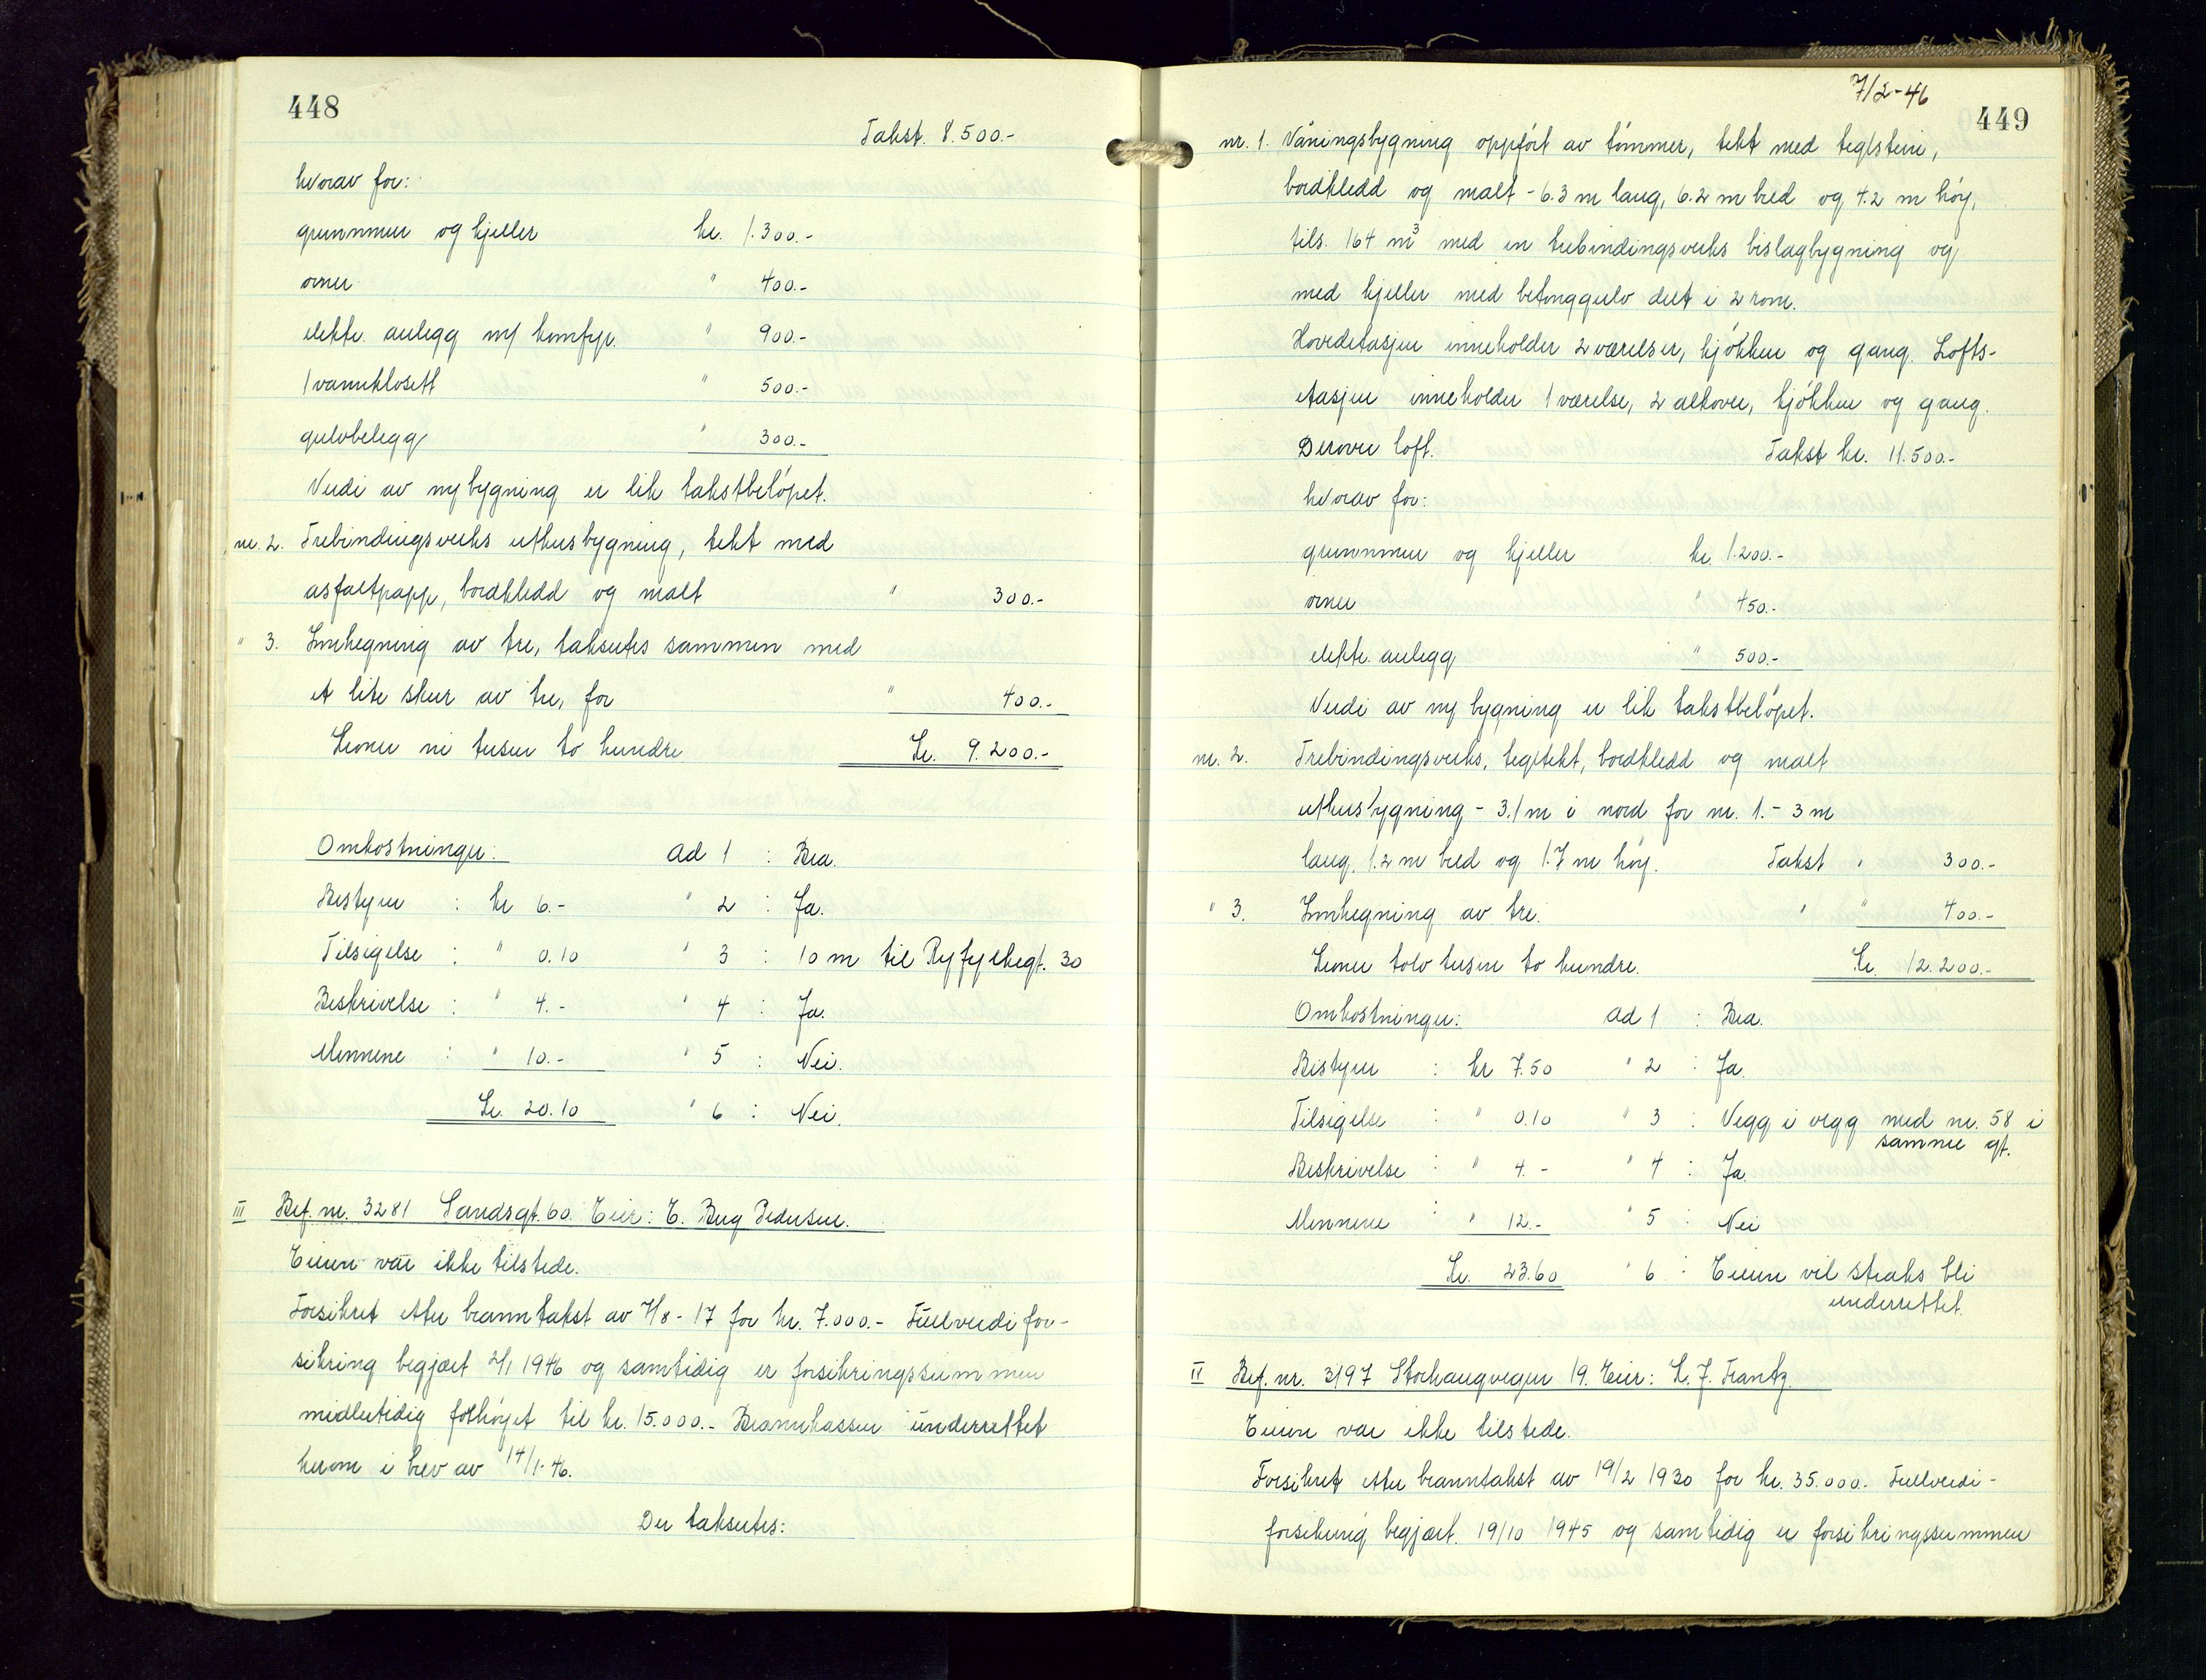 448
Takst. 8.500.-
hvorav for:
grunnmur og kjeller kr. 1.300.-
ovner " 400.-
elektr. anlegg m/ komfyr. " 900.-
1 vannklosett " 500.-
gulvbelegg " 300.-
Verdi av ny bygning er lik takstbeløpet.
nr. 2. Trebindingsverks uthusbygning, tekt med
asfaltpapp, bordkledd og malt " 300.-
" 3. Innhegning av tre, takseres sammen med
et lite skur av tre, for " 400.-
Kroner ni tusen to hundre Kr. 9.200.-
Omkostninger: ad 1 : Bra.
Bestyrer : kr 6.- " 2 : Ja.
Tilsigelse : " 0.10 " 3 : 10 m til Ryfylkegt. 30
Beskrivelse : " 4.- " 4 : Ja.
Mennene : " 10.- " 5 : Nei.
Kr. 20.10 " 6 : Nei.
III Bef. nr. 3281 Sandsgt. 60. Eier: E. Berg Pedersen.
Eieren var ikke tilstede.
Forsikret etter branntakst av 7/8-17 for kr. 7.000.- Fullverdifor-
sikring begjært 2/1 1946 og samtidig er forsikringssummen
midlertidig forhøyet til kr. 15.000.- Brannkassen underrettet
herom i brev av 14/1-46.
Der takseres:
7/2-46
449
nr. 1. Våningsbygning oppført av tømmer, tekt med teglstein,
bordkledd og malt - 6.3 m lang, 6.2 m bred og 4.2 m høy,
tils. 164 m³ med en trebindingsverks bislagbygning og
med kjeller med betonggulv delt i 2 rom.
Hovedetasjen inneholder 2 værelser, kjøkken og gang. Lofts-
etasjen inneholder 1 værelse, 2 alkover, kjøkken og gang.
Derover loft. Takst kr. 11.500.-
hvorav for:
grunnmur og kjeller kr 1.200.-
ovner " 450.-
elektr. anlegg " 500.-
Verdi av ny bygning er lik takstbeløpet.
nr. 2. Trebindingsverks, tegltekt, bordkledd og malt
uthusbygning - 3.1 m i nord for nr. 1. - 3 m
lang, 1.2 m bred og 1.7 m høy. Takst " 300.-
" 3. Innhegning av tre. " " 400.-
Kroner tolv tusen to hundre. Kr. 12.200.-
Omkostninger: ad 1 : Bra.
Bestyrer : kr 7.50 " 2 : Ja.
Tilsigelse : " 0.10 " 3 : Vegg i vegg med nr. 58 i
samme gt.
Beskrivelse : " 4.- " 4 : Ja.
Mennene : " 12.- " 5 : Nei
Kr. 23.60 " 6 : Eieren vil straks bli
underrettet.
IV Bef. nr. 3197 Storhaugvegen 19. Eier: K. J. Frantz.
Eieren var ikke tilstede.
Forsikret etter branntakst av 19/2 1930 for kr. 35.000.- Fullverdi-
forsikring begjært 19/10 1945 og samtidig er forsikringssummen